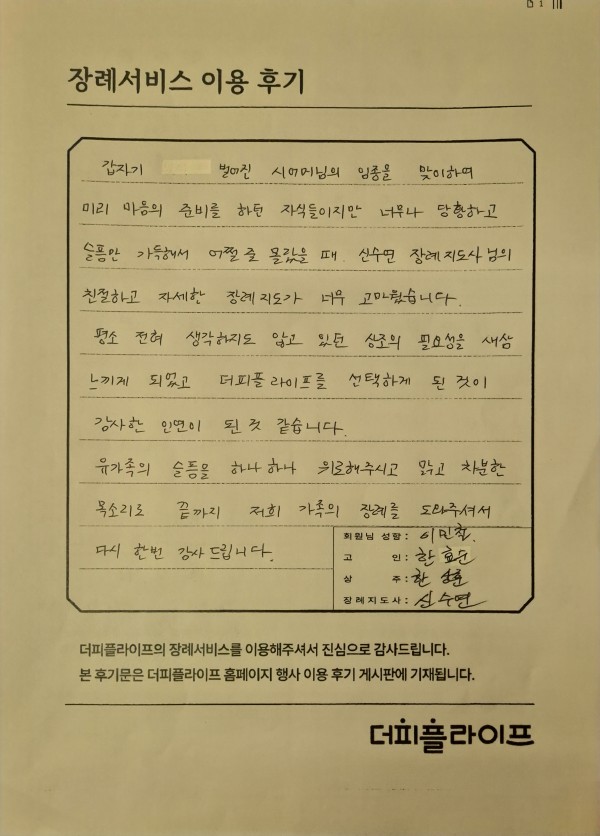 장례서비스 이용 후기
갑자기 벌어진 시어머님의 임종을 맞이하며
미리 마음의 준비를 하던 자식들이지만 너무나 당황하고
슬픔만 가득해서 어쩔 줄 몰랐을 때 신수연 장례지도사님의
친절하고 자세한 장례지도가 너무 고마웠습니다.
평소 전혀 생각하지도 않고 있던 상조의 필요성을 새삼
느끼게 되었고 더피플라이프를 선택하게 된 것이
감사한 인연이 된 것 같습니다.
유가족의 슬픔을 하나하나 위로해주시고 맑고 차분한
목소리로 끝까지 저희 가족의 장례를 도와주셔서
다시 한번 감사 드립니다.
회원님 성함:
고 인: 한효순
상 주: 한상훈
장례지도사: 신수연
더피플라이프의 장례서비스를 이용해주셔서 진심으로 감사드립니다.
본 후기문은 더피플라이프 홈페이지 행사 이용 후기 게시판에 기재됩니다.
더피플라이프